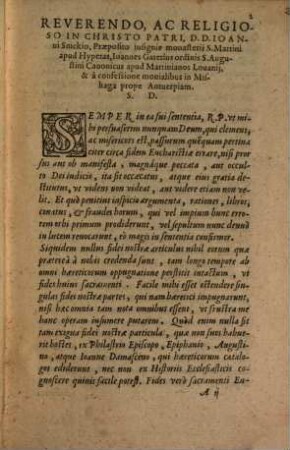 REVERENDO, AC RELIGIO-
SO IN CHRISTO PATRI, D.D. IOAN-
ni Snickio, Præposito insignis monasterii S. Martini
apud Hypetas, Ioannes Gaerzius ordinis S. Augu-
stini Canonicus apud Martinianos Louanij,
& à confessione monialibus in Mis-
haga prope Antuerpiam.
S. D.
SEMPER in ea fui sententia, R.P. vt mi-
hi persuaserim nunquam Deum, qui clemens,
ac misericors est, passurum quenquam pertina-
citer circa fidem Eucharistiæ errare, nisi pro-
pter aut ob manifesta, magnáque peccata, aut occul-
to Dei iudicio, ita sit excæcatus, atque eius gratia
destitutus, vt videns non videat, aut videre etiam non ve-
lit. Et quò penitius inspicio argumenta, rationes, libros,
conatus, & fraudes horum, qui vel impium hunc erro-
rem orbi primum prodiderunt, vel sepultum nunc denuò
in lucem reuocarunt, eò magis in sententia confirmor.
Siquidem nullus fidei nostræ articulus nihil eorum quæ
præterea à nobis credenda sunt, tam longo tempore ab
omni hæreticorum oppugnatione perstitit intactum, vt
fides huius sacramenti. Facile mihi esset ostendere sin-
gulas fidei nostræ partes, qui nam hæretici impugnarint,
nisi hæc omnia tam nota omnibus essent, vt frustra me
hanc operam insumere putarem. Quòd enim nulla sit
tam exigua fidei nostræ particula, quæ non suos habue-
rit hostes, ex Philastrio Episcopo, Epiphanio, Augusti-
no, atque Ioanne Damasceno, qui hæreticorum catalo-
gos ediderunt, nec non ex Historiis Ecclesiasticis co-
gnoscere quiuis facile potest. Fides verò sacramenti Eu-
A ij